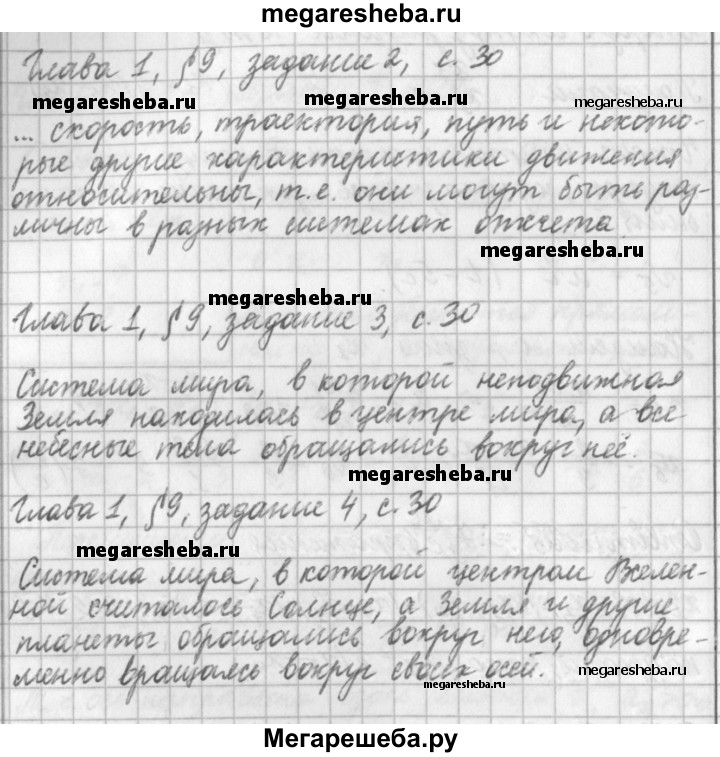 megaresheba.ru
Глава 1, §9, задание 2, с. 30
megaresheba.ru megaresheba.ru megaresheba.ru
... скорость, траектория, путь и некото-
рые другие характеристики движения
относительны, т.е. они могут быть раз-
личны в разных системах отсчета.
megaresheba.ru
megaresheba.ru
Глава 1, §9, задание 3, с. 30
Система мира, в которой неподвижная
Земля находилась в центре мира, а все
небесные тела обращались вокруг неё.
megaresheba.ru
Глава 1, §9, задание 4, с. 30
megaresheba.ru
Система мира, в которой центром Вселен-
ной считалось Солнце, а Земля и другие
планеты обращались вокруг него, одновре-
менно вращаясь вокруг своих осей.
megaresheba.ru megaresheba.ru
Мегарешеба.ру